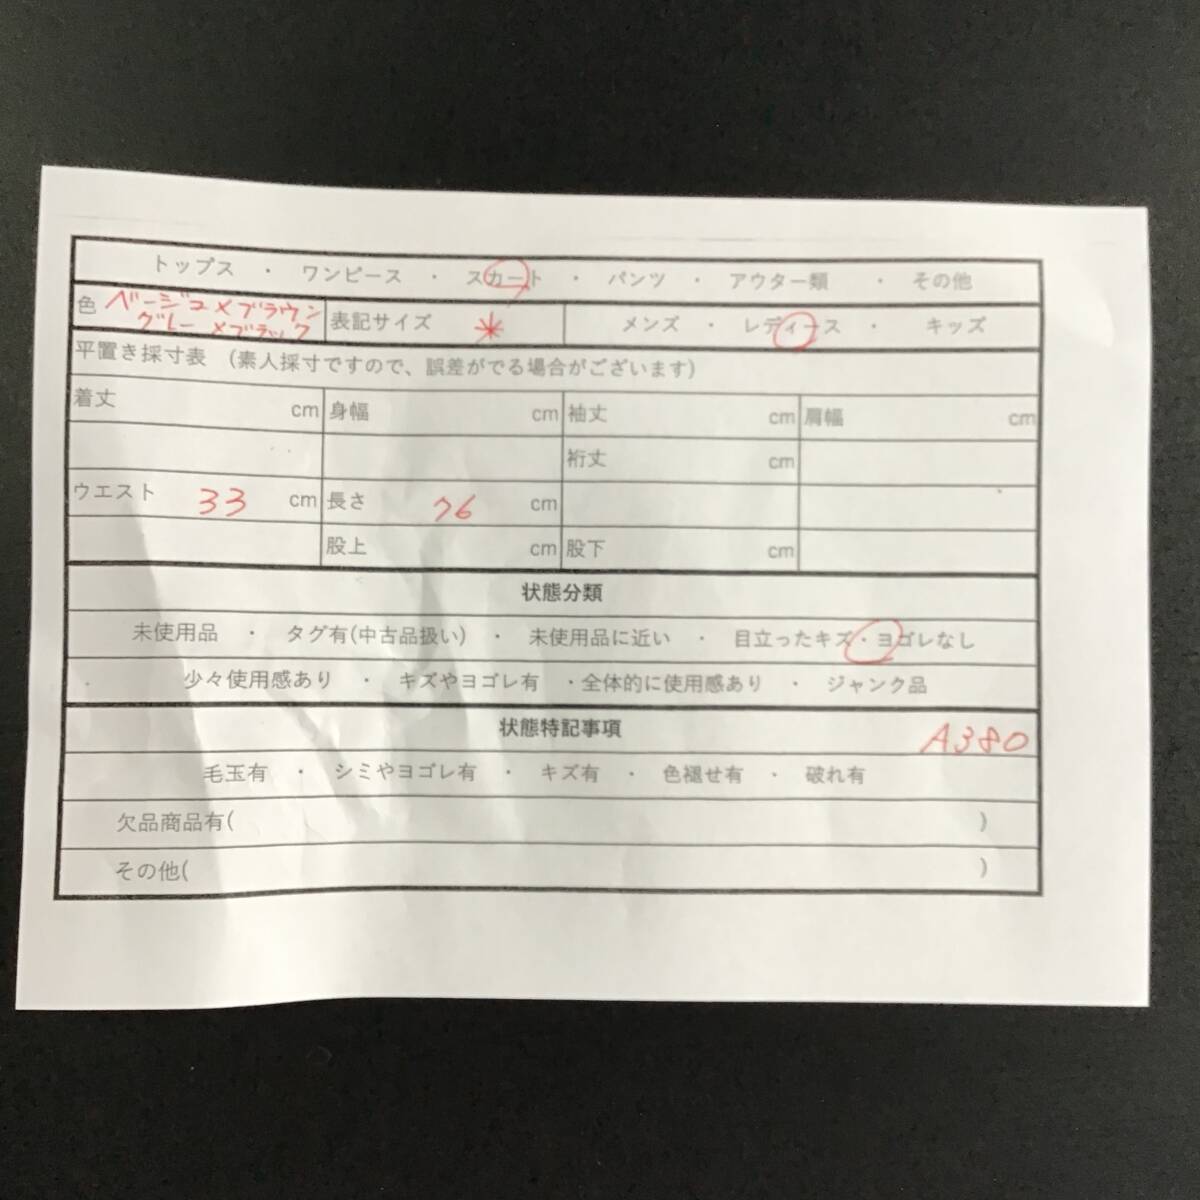 トップス ・ ワンピース ・ スカート ・ パンツ ・ アウター類 ・ その他
色 ベージュ×ブラウン
グレー×ブラック 表記サイズ * メンズ ・ レディース ・ キッズ
平置き採寸表 (素人採寸ですので、誤差がでる場合がございます)
着丈 cm 身幅 cm 袖丈 cm 肩幅 cm
裄丈 cm
ウエスト 33 cm 長さ 76 cm
股上 cm 股下 cm
状態分類
未使用品 ・ タグ有(中古品扱い) ・ 未使用品に近い ・ 目立ったキズ・ヨゴレなし
少々使用感あり ・ キズやヨゴレ有 ・全体的に使用感あり ・ ジャンク品
状態特記事項 A380
毛玉有 ・ シミやヨゴレ有 ・ キズ有 ・ 色褪せ有 ・ 破れ有
欠品商品有( )
その他( )